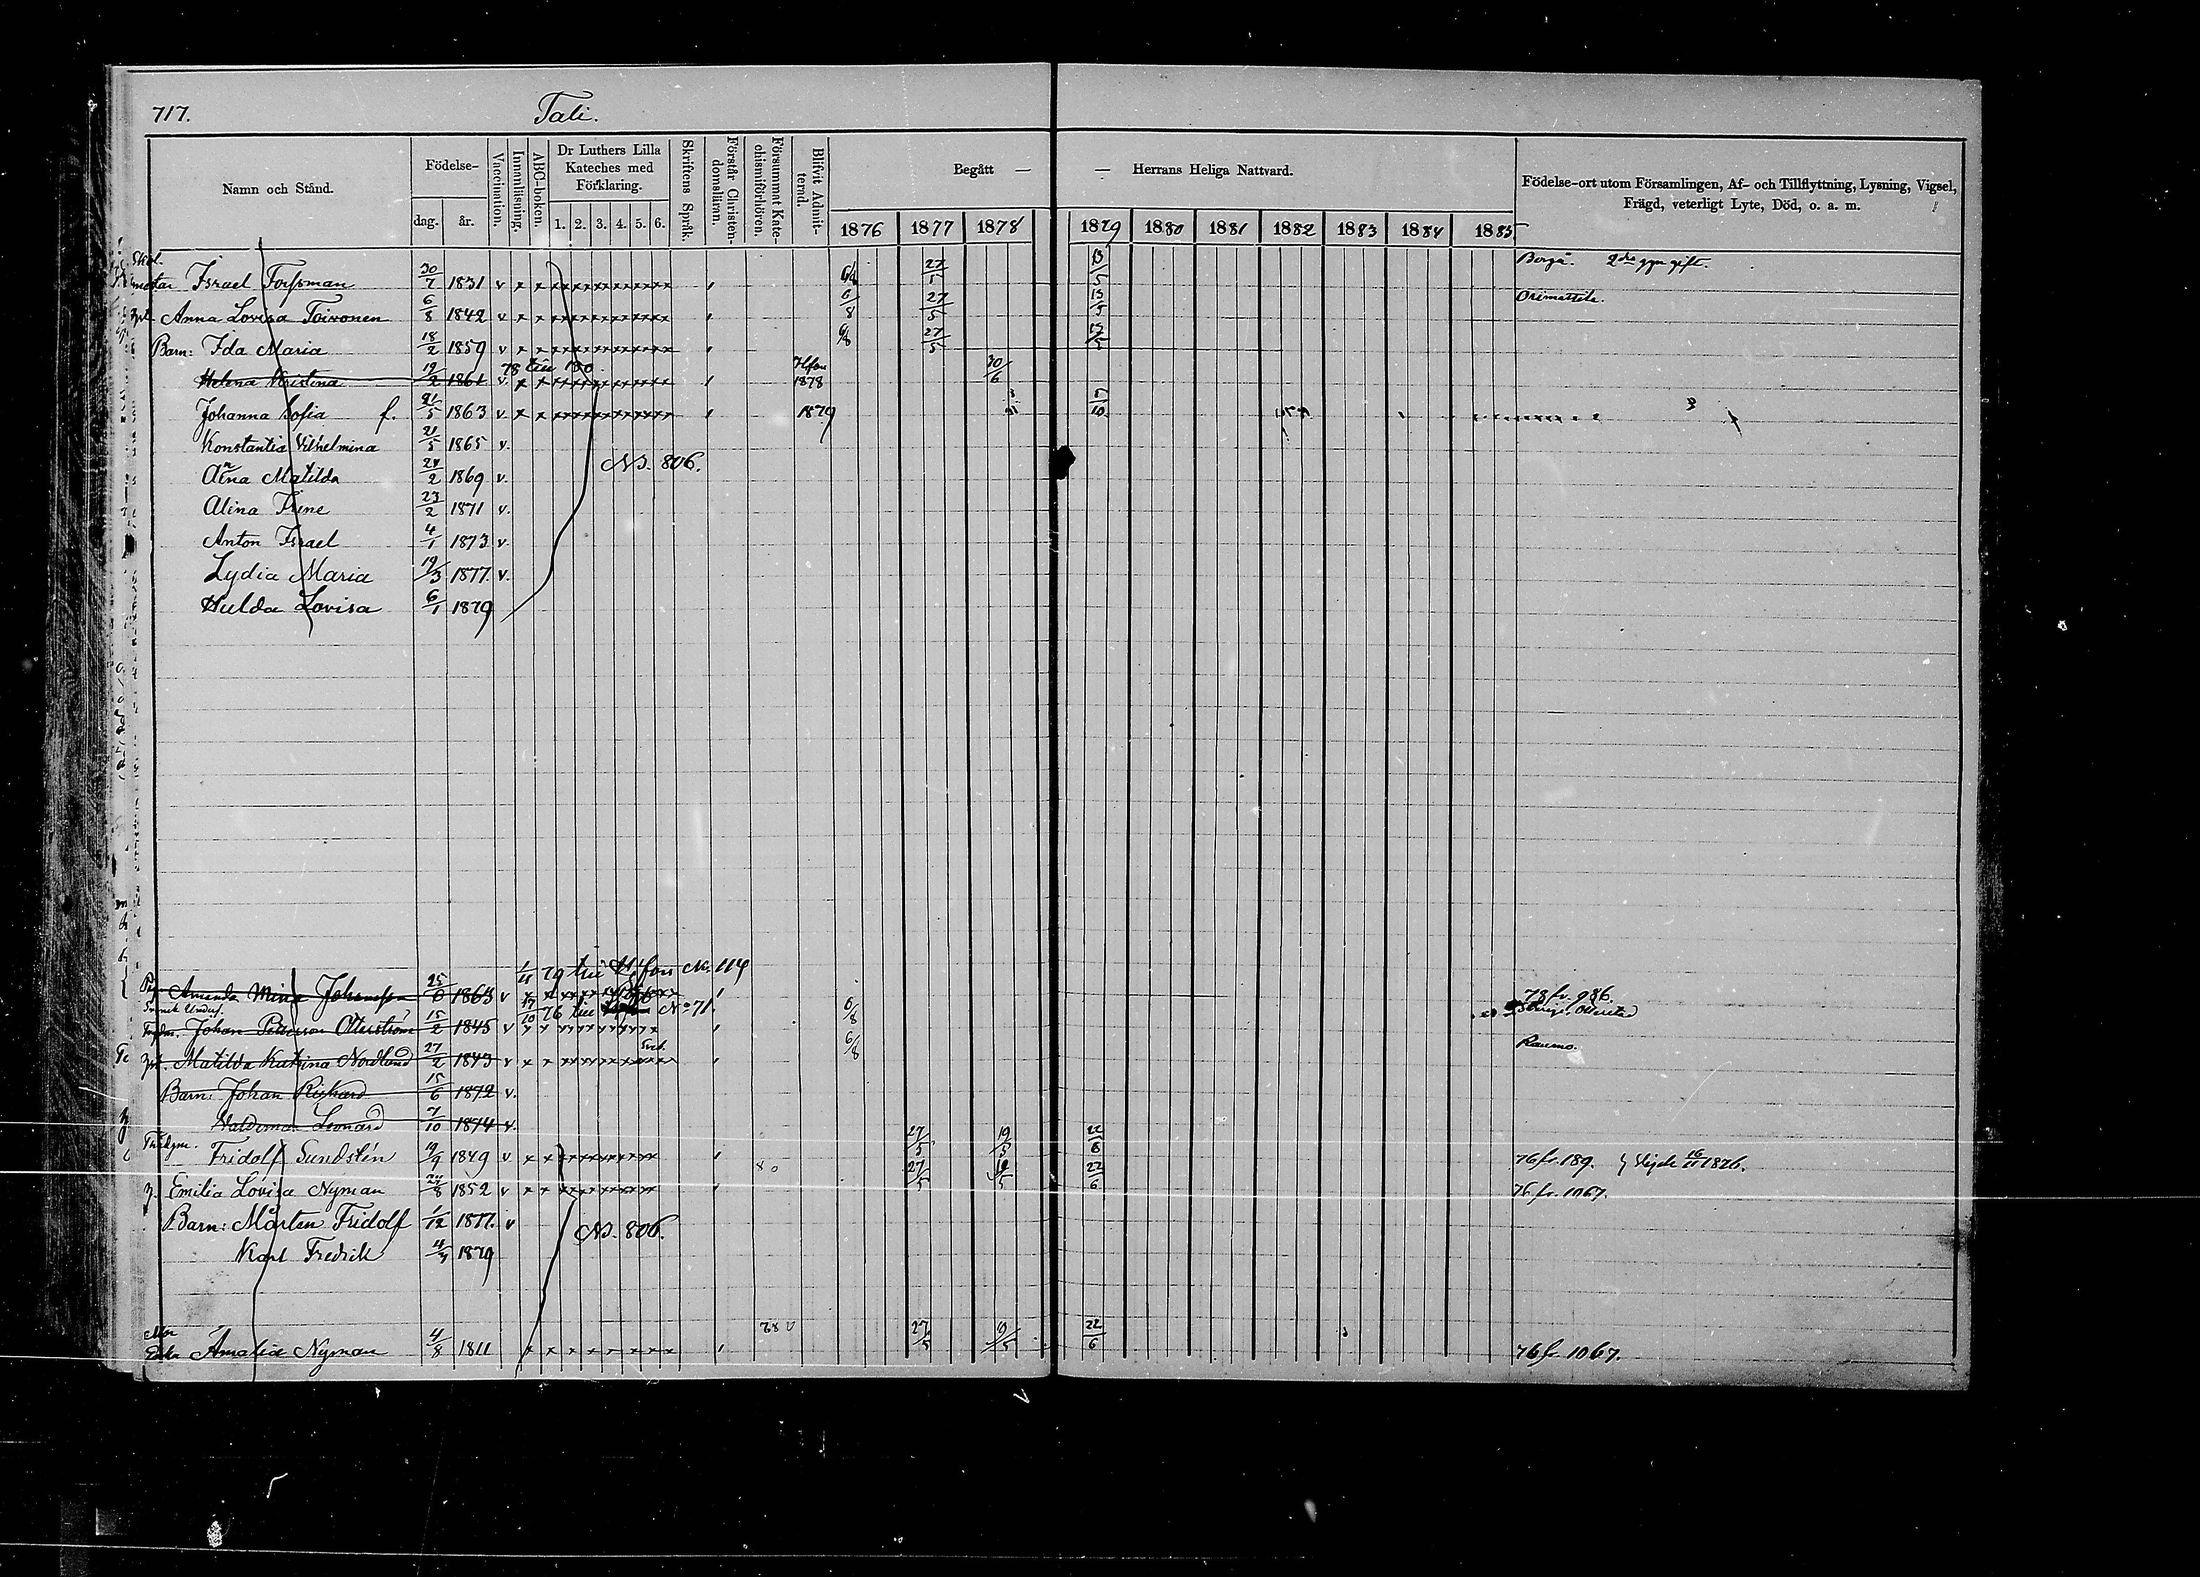 717. Tali.
Namn och Stånd. Födelse- dag. år. Vaccination. Innanläsning. ABC-boken. Dr Luthers Lilla Kateches med Förklaring. 1. 2. 3. 4. 5. 6. Skriftens Språk. Förstår Christendomsläran. Försummat Katechismiförhören. Blifvit Admitterad. Begått — — Herrans Heliga Nattvard. Födelse-ort utom Församlingen, Af- och Tillflyttning, Lysning, Vigsel, Frägd, veterligt Lyte, Död, o. a. m.
1876 1877 1878 1879 1880 1881 1882 1883 1884 1885
Israel Forssman 30/7 1831 v x x 6/8 27/5 13/5 Borgå. 2dra ggn gift.
Anna Lovisa Toivonen 6/8 1842 v x x 6/8 27/5 13/5 Orimattila.
Barn: Ida Maria 18/2 1859 v x x 6/8 27/5 13/5
78 till 130.
Helena Kristina 19/2 1861 v x x Hfors 1878 30/6
Johanna Sofia f. 21/5 1863 v x x 1879 5/10
Konstantia Vilhelmina 21/5 1865 v.
No. 806.
Matilda 24/2 1869 v.
Alina Irene 23/2 1871 v.
Anton Israel 4/1 1873 v.
Lydia Maria 19/3 1877. v.
Hulda Lovisa 6/1 1879
79 till Hfors No. 114
Amanda Mina Johansson 25/6 1863 v 78 fr. 986.
76 till No 71.
Johan Petterson Otterström 15/2 1845 v x x 6/8 Sverige, Otterstad
Matilda Katrina Nordlund 27/2 1843 v x x 6/8 Raumo.
Barn: Johan Rickard 15/6 1872 v.
Valdemar Leonard 7/10 1874 v.
Fridolf Sundstén 19/9 1849 v x x 27/5 19/5 22/6 76 fr. 189. Vigde 16/11 1876.
Emilia Lovisa Nyman 27/8 1852 v x x 80 27/5 19/5 22/6 76 fr. 1067.
Barn: Mårten Fridolf 1/12 1877. v
No. 806.
Karl Fredrik 4/4 1879
Enka Amalia Nyman 4/8 1811 x x 27/5 19/5 22/6 76 fr. 1067.